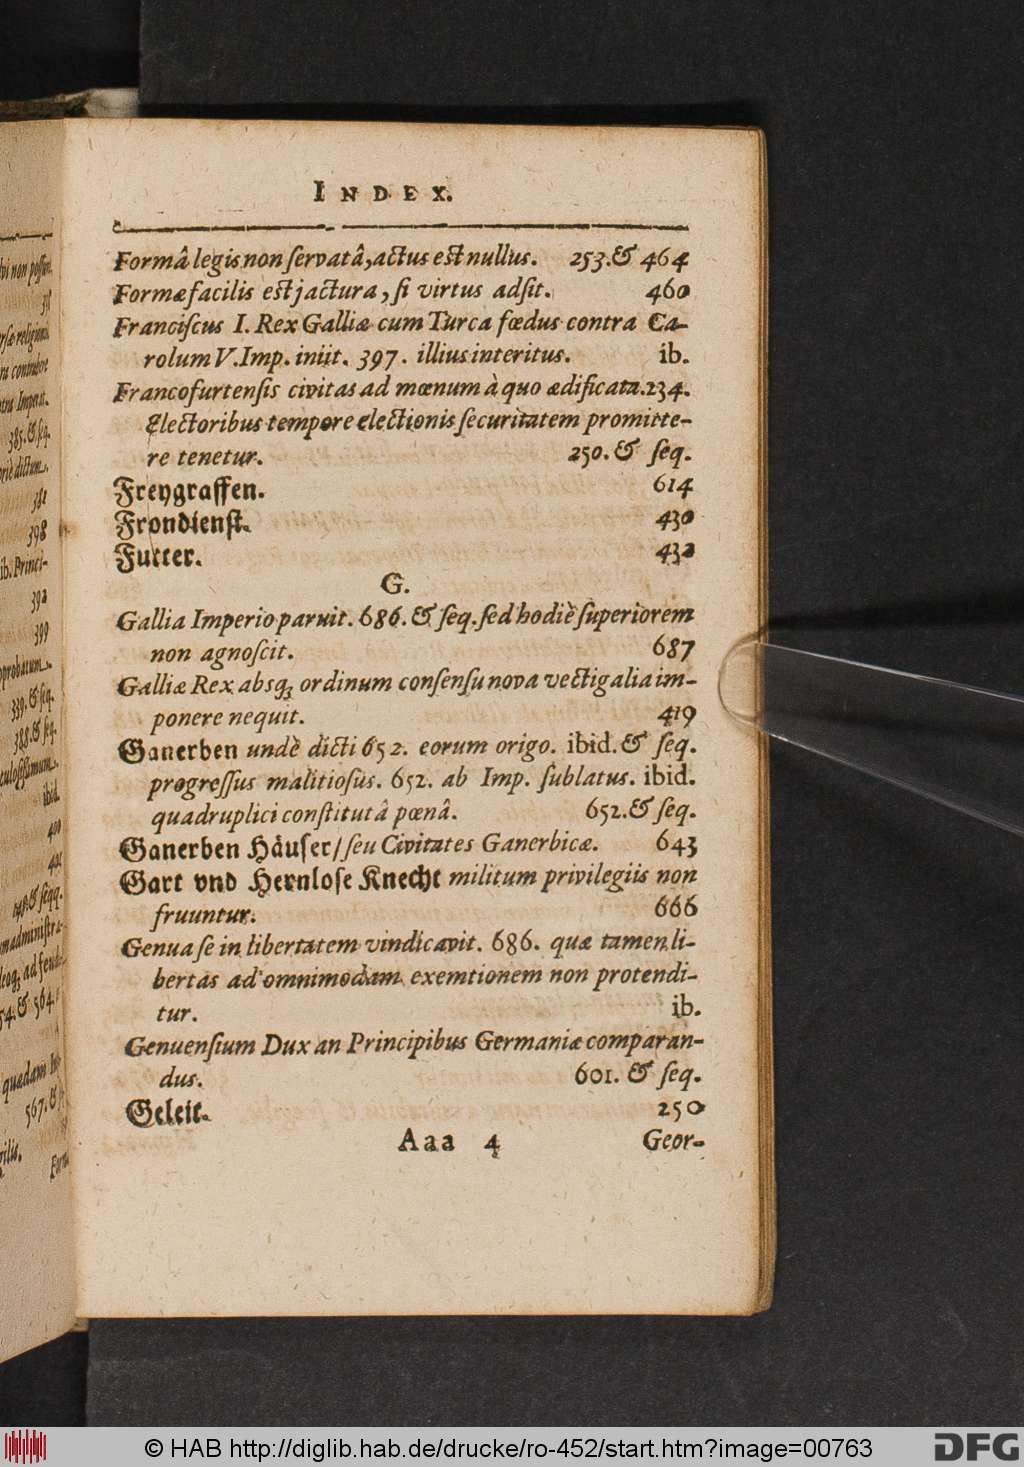 INDEX.
Formâ legis non servatâ, actus est nullus. 253. & 464
Formæ facilis est jactura, si virtus adsit. 460
Franciscus I. Rex Galliæ cum Turca fœdus contra Ca-
rolum V. Imp. iniit. 397. illius interitus. ib.
Francofurtensis civitas ad mœnum à quo ædificata. 234.
Electoribus tempore electionis securitatem promitte-
re tenetur. 250. & seq.
Freygraffen. 614
Frondienst. 430
Futter. 432
G.
Gallia Imperio paruit. 686. & seq. sed hodiè superiorem
non agnoscit. 687
Galliæ Rex absq; ordinum consensu nova vectigalia im-
ponere nequit. 419
Ganerben undè dicti 652. eorum origo. ibid. & seq.
progressus malitiosus. 652. ab Imp. sublatus. ibid.
quadruplici constitutâ pœnâ. 652. & seq.
Ganerben Häuser / seu Civitates Ganerbicæ. 643
Gart vnd Hernlose Knecht militum privilegiis non
fruuntur. 666
Genua se in libertatem vindicavit. 686. quæ tamen li-
bertas ad omnimodam exemtionem non protendi-
tur. ib.
Genuensium Dux an Principibus Germaniæ comparan-
dus. 601. & seq.
Geleit. 250
Aaa 4 Geor-
385. & seq.
398
ib. Princi-
392
399
339. & seq.
388. & seq.
ibid.
400
567. &
© HAB http://diglib.hab.de/drucke/ro-452/start.htm?image=00763
DFG